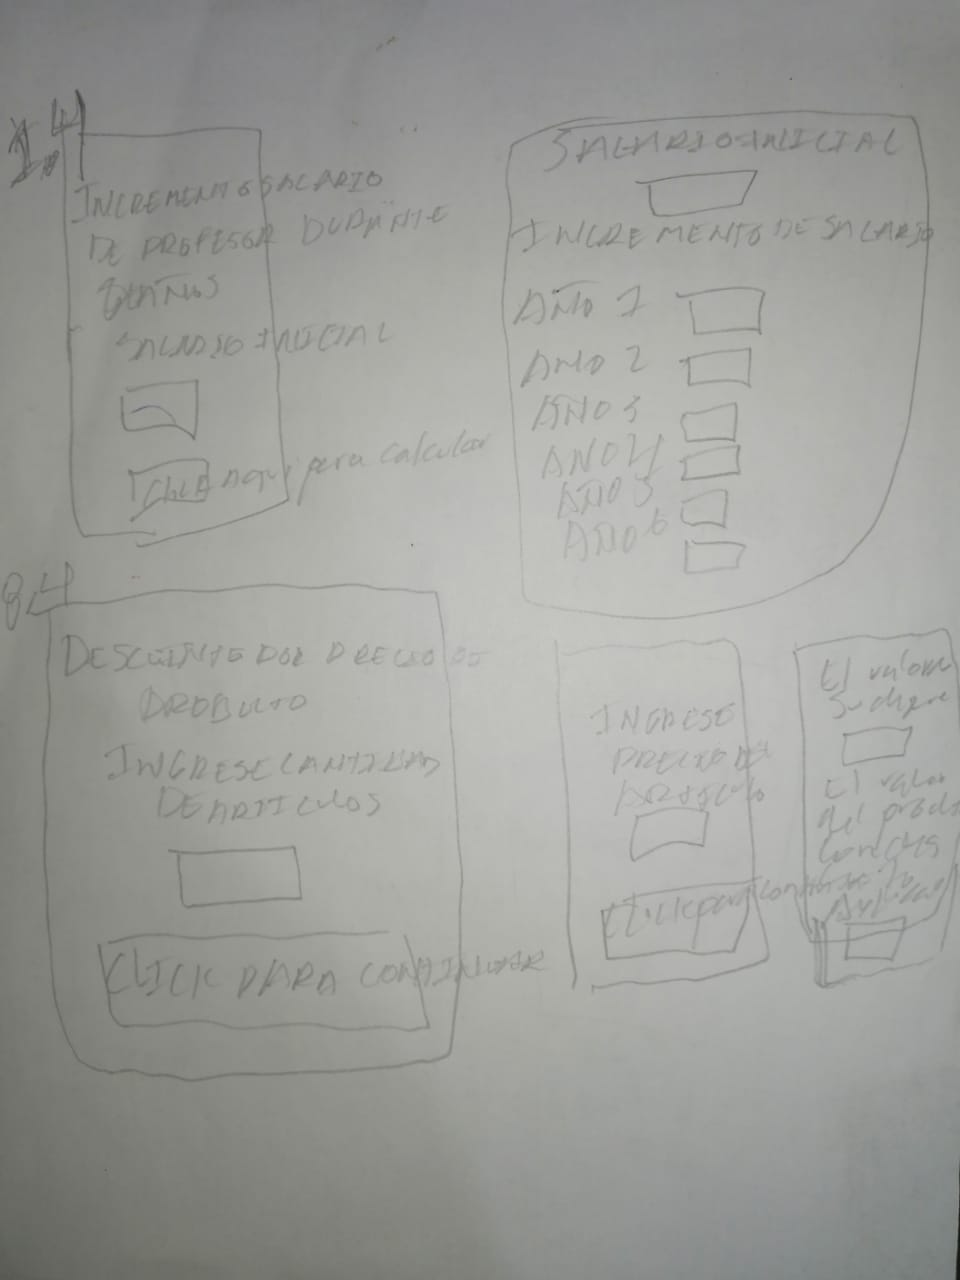 1.4
INCREMENTO SALARIO
DE PROFESOR DURANTE
6 AÑOS
SALARIO INICIAL
Click Aqui para calcular
SALARIO INICIAL
INCREMENTO DE SALARIO
AÑO 1
AÑO 2
AÑO 3
AÑO 4
AÑO 5
AÑO 6
8.4
DESCUENTO POR PRECIO DE
PRODUCTO
INGRESE CANTIDAD
DE ARTICULOS
CLICK PARA CONTINUAR
INGRESE
PRECIO DEL
ARTICULO
Click para continuar
El valor
El valor
del produ
con